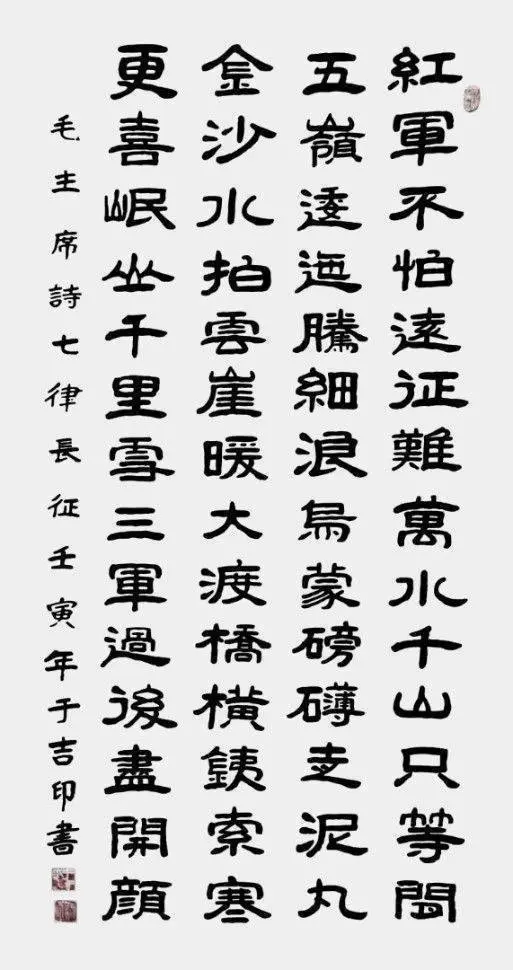 紅軍不怕遠征難萬水千山只等閒
五嶺逶迤騰細浪烏蒙磅礴走泥丸
金沙水拍雲崖暖大渡橋橫銕索寒
更喜岷山千里雪三軍過後盡開顏
毛主席詩七律長征壬寅年于吉印書